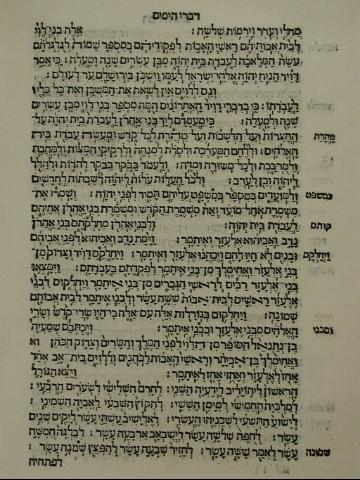 דברי הימים
מחלי ועדר וירמות שלשה: אלה בני לוי
לבית אבותיהם ראשי האבות לפקודיהם במספר שמות לגלגלתם
עשה המלאכה לעבדת בית יהוה מבן עשרים שנה ומעלה: כי אמר
דויד הניח יהוה אלהי ישראל לעמו וישכן בירושלם עד לעולם:
וגם ללוים אין לשאת את המשכן ואת כל כליו
לעבדתו: כי בדברי דויד האחרונים המה מספר בני לוי מבן עשרים
שנה ולמעלה: כי מעמדם ליד בני אהרן לעבדת בית יהוה על
טהרת החצרות ועל הלשכות ועל טהרת לכל קדש ומעשה עבדת בית
האלהים: וללחם המערכת ולסלת למנחה ולרקיקי המצות ולמחבת
ולמרבכת ולכל משורה ומדה: ולעמד בבקר בבקר להדות ולהלל
ליהוה וכן לערב: ולכל העלות עלות ליהוה לשבתות לחדשים
כמשפט ולמועדים במספר כמשפט עליהם תמיד לפני יהוה: ושמרו את
משמרת אהל מועד ואת משמרת הקדש ומשמרת בני אהרן אחיהם
לעבדת בית יהוה: ולבני אהרן מחלקותם בני אהרן
נדב ואביהוא אלעזר ואיתמר: וימת נדב ואביהוא לפני אביהם
ויחלקם ובנים לא היו להם ויכהנו אלעזר ואיתמר: ויחלקם דויד וצדוק מן
בני אלעזר ואחימלך מן בני איתמר לפקדתם בעבדתם: וימצאו
בני אלעזר רבים לראשי הגברים מן בני איתמר ויחלקום לבני
אלעזר ראשים לבית אבות ששה עשר ולבני איתמר לבית אבותם
שמונה: ויחלקום בגורלות אלה עם אלה כי היו שרי קדש ושרי
האלהים מבני אלעזר ובבני איתמר: ויכתבם שמעיה
בן נתנאל הסופר מן הלוי לפני המלך והשרים וצדוק הכהן
ואחימלך בן אביתר וראשי האבות לכהנים וללוים בית אב אחד
אחז לאלעזר ואחז אחז לאיתמר: ויצא הגורל
הראשון ליהויריב לידעיה השני: לחרם השלישי לשערים הרבעי:
למלכיה החמישי למימן הששי: להקוץ השבעי לאביה השמיני:
לישוע התשעי לשכניהו העשרי: לאלישיב עשתי עשר ליקים שנים
עשר: לחפה שלשה עשר לישבאב ארבעה עשר: לבלגה חמשה
עשר לאמר ששה עשר: לחזיר שבעה עשר להפצץ שמונה עשר:
לפתחיה